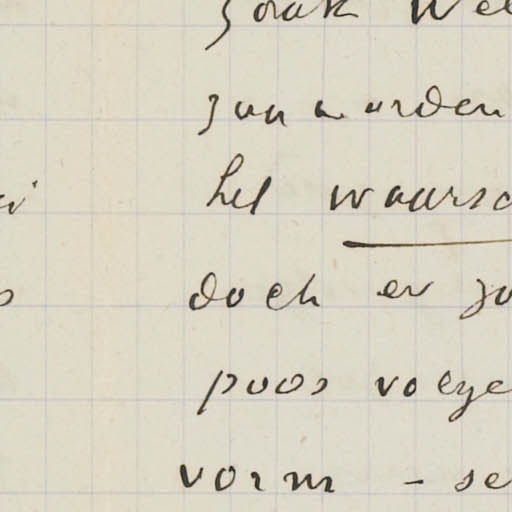 zoals We
zun worden
het waarsc
doch er zo
poos volge
vorm - se